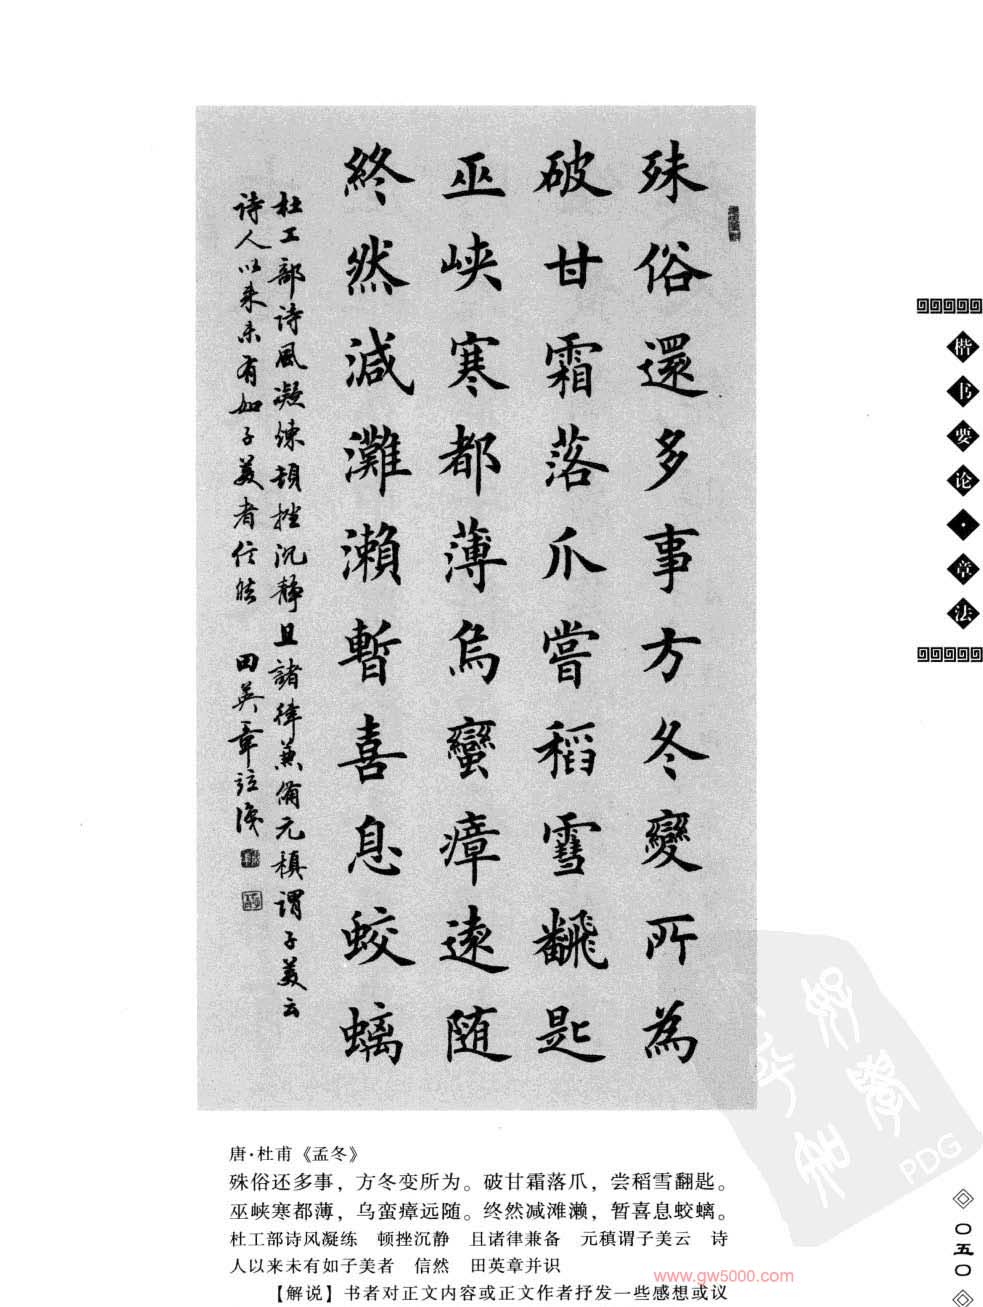 殊俗還多事方冬變所為
破甘霜落爪嘗稻雪飜匙
巫峡寒都薄烏蠻瘴遠随
終然減灘瀨暫喜息蛟螭
杜工部诗風凝煉頓挫沉静且諸律兼備元稹謂子美云
诗人以来未有如子美者信然 田英章并識
楷书要论·章法
唐·杜甫《孟冬》
殊俗还多事，方冬变所为。破甘霜落爪，尝稻雪翻匙。
巫峡寒都薄，乌蛮瘴远随。终然减滩濑，暂喜息蛟螭。
杜工部诗风凝练 顿挫沉静 且诸律兼备 元稹谓子美云 诗
人以来未有如子美者 信然 田英章并识
【解说】书者对正文内容或正文作者抒发一些感想或议
〇五〇
www.gw5000.com
PDG